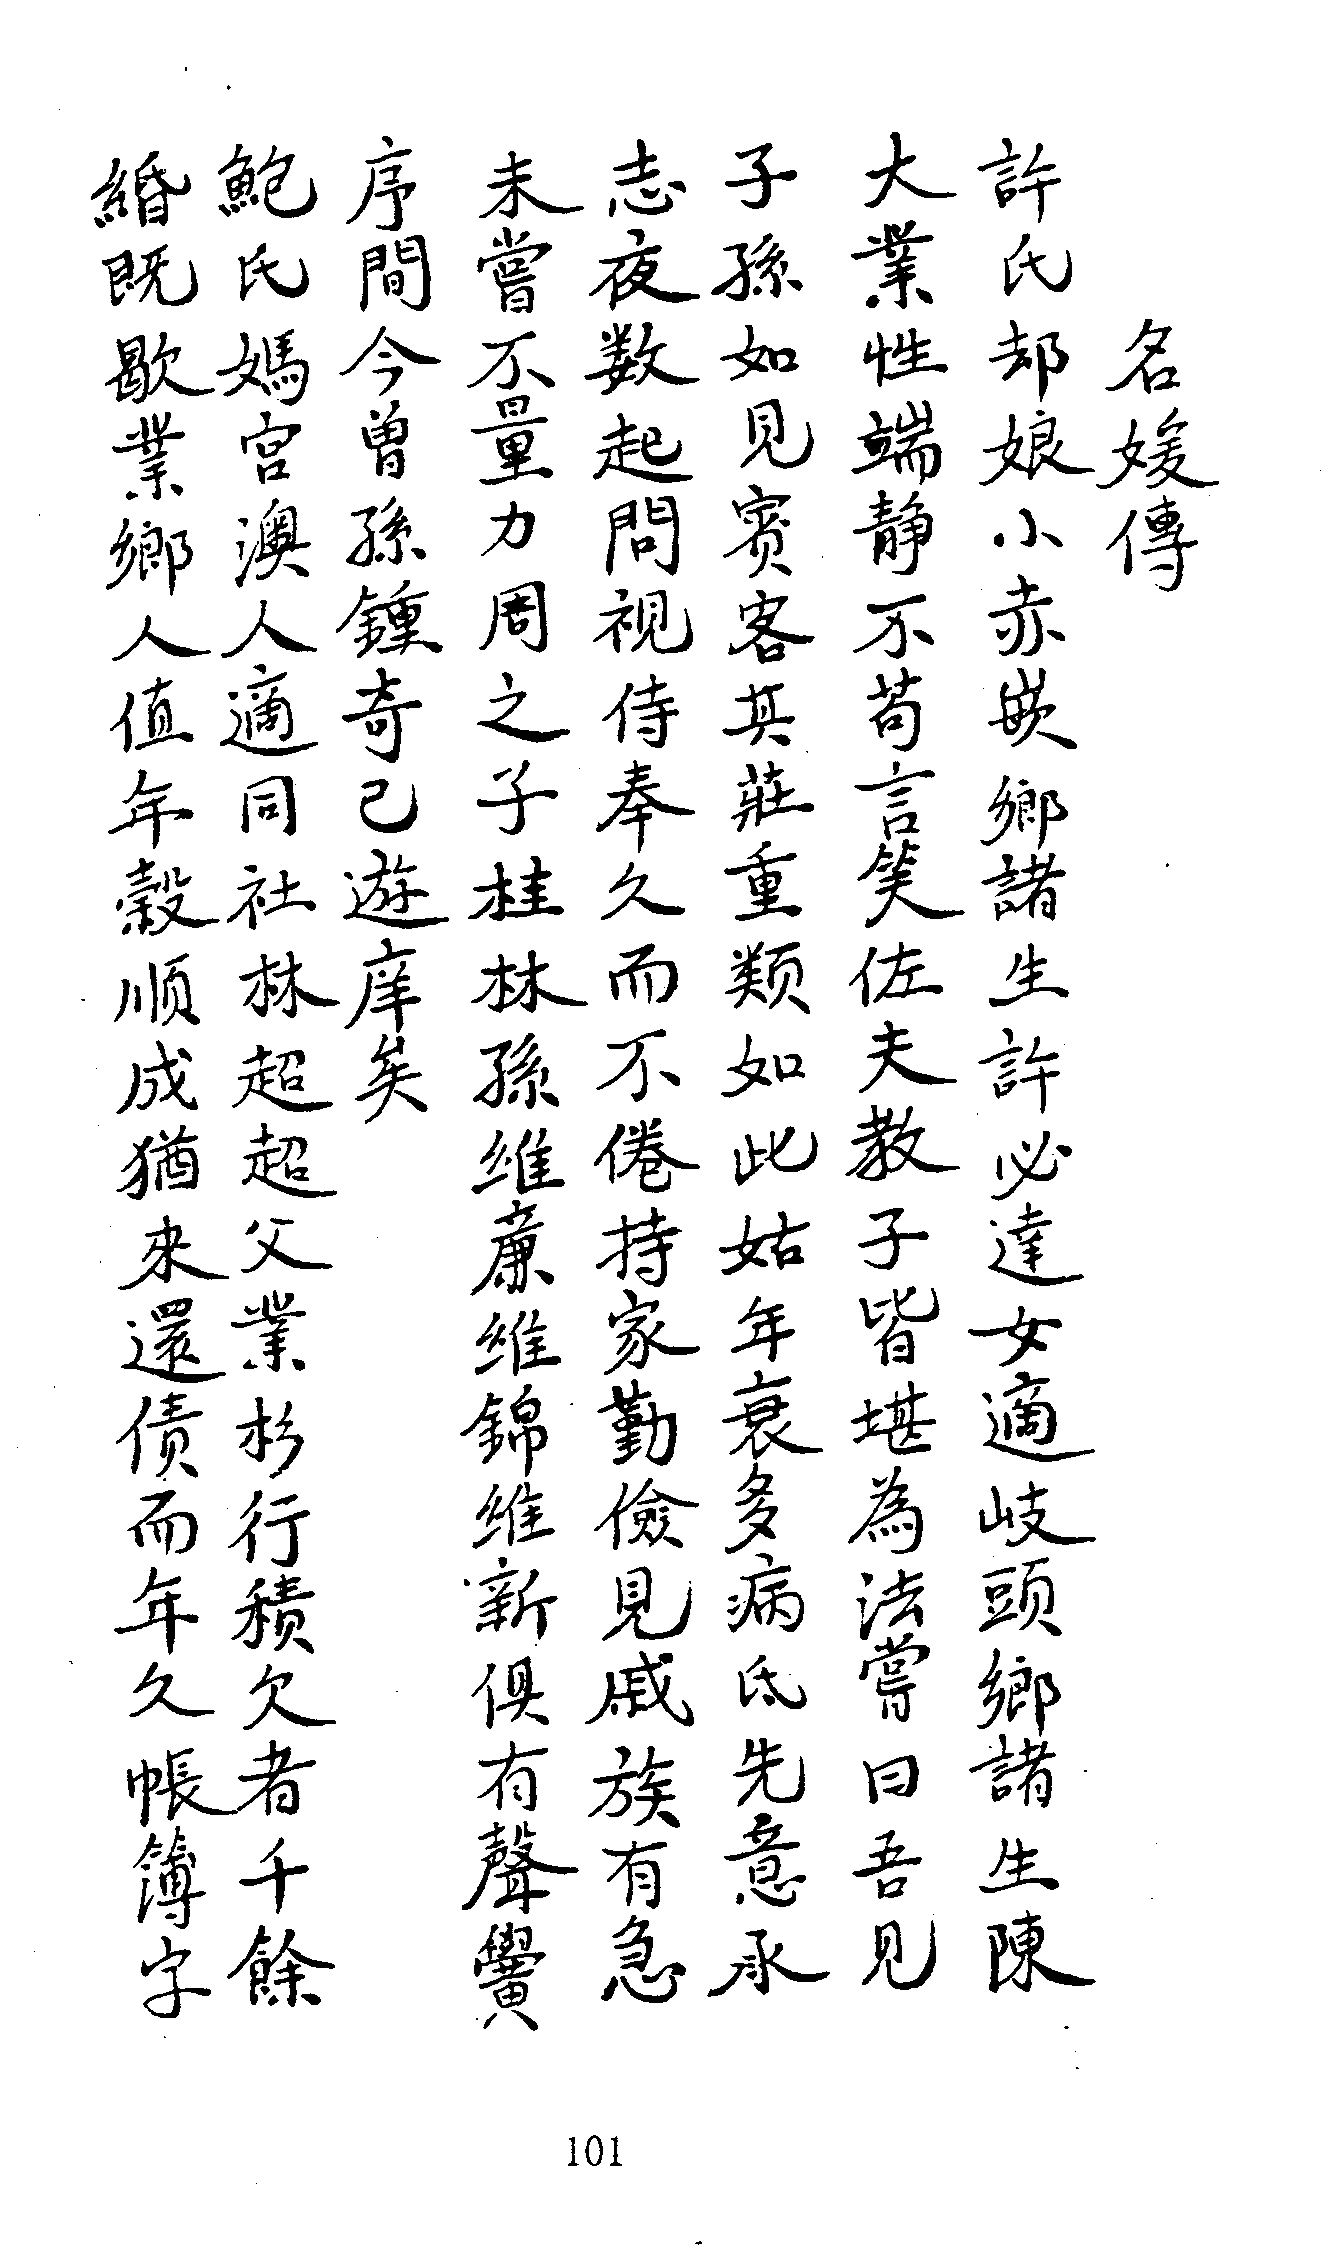 名媛傳
許氏却娘小赤嵌鄉諸生許必達女適岐頭鄉諸生陳
大業性端静不苟言笑佐夫教子皆堪為法嘗曰吾見
子孫如見賓客其莊重類如此姑年衰多病氏先意承
志夜数起問視侍奉久而不倦持家勤儉見戚族有急
未嘗不量力周之子桂林孫維亷維錦維新俱有聲黌
序間今曾孫鍾奇已遊庠矣
鮑氏媽宮澳人適同社林超超父業杉行積欠者千餘
緡既歇業鄉人值年穀順成猶來還債而年久帳簿字
101